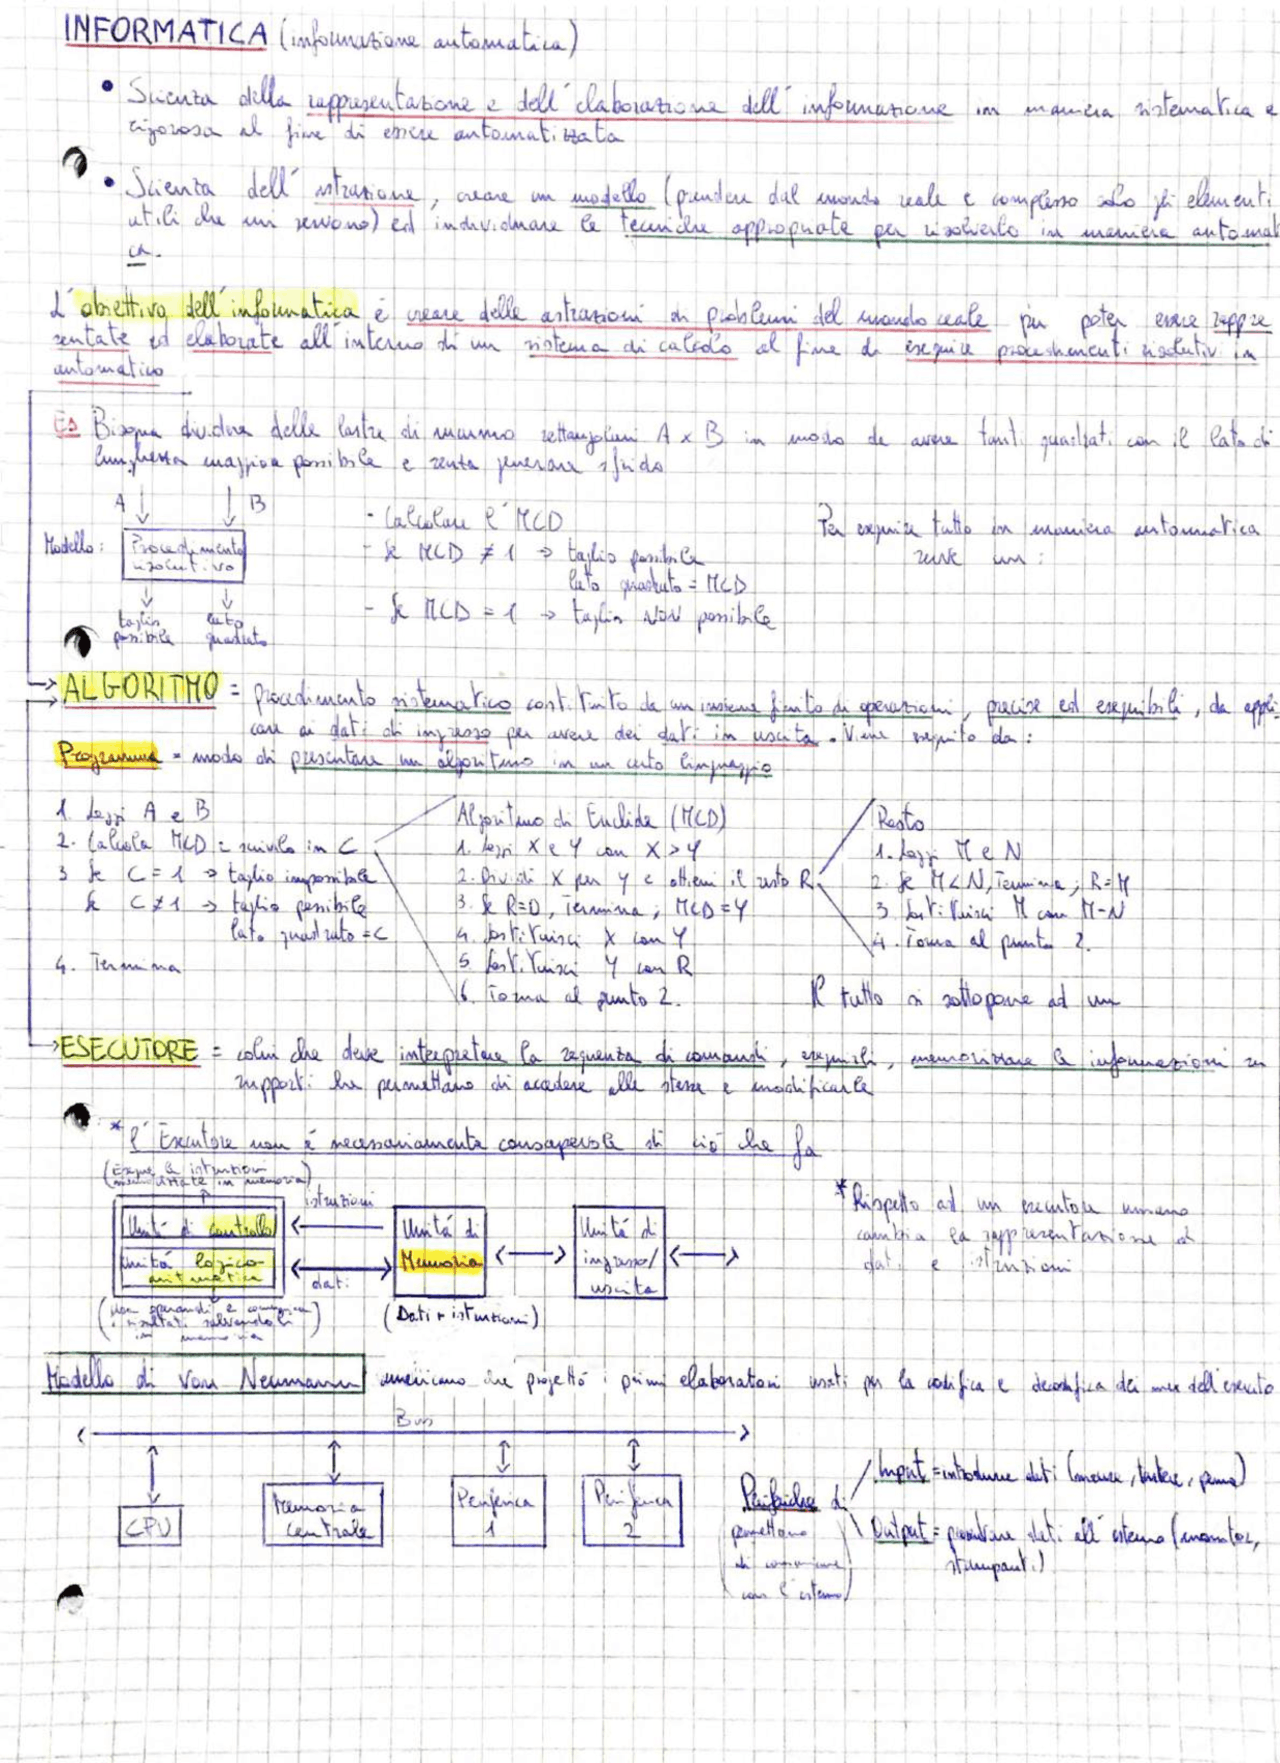 INFORMATICA (informazione automatica)
• Scienza della rappresentazione e dell'elaborazione dell'informazione in maniera sistematica e
rigorosa al fine di essere automatizzata
• Scienza dell'astrazione, creare un modello (prendere dal mondo reale e complesso solo gli elementi
utili che mi servono) ed individuare le tecniche appropriate per risolverlo in maniera automati
ca.
L'obiettivo dell'informatica é creare delle astrazioni di problemi del mondo reale per poter essere rappre
sentate ed elaborate all'interno di un sistema di calcolo al fine di eseguire procedimenti risolutivi in
automatico
Es Bisogna dividere delle lastre di marmo rettangolari A x B in modo da avere tanti quadrati con il lato di
lunghezza maggiore possibile e senza generare sfrido
A B
Modello: Procedimento
risolutivo
taglio possibile
lato quadrato
- Calcolare l'MCD
- Se MCD ≠ 1 → taglio possibile
lato quadrato = MCD
- Se MCD = 1 → taglio NON possibile
Per eseguire tutto in maniera automatica
serve un:
ALGORITMO = procedimento sistematico costituito da un insieme finito di operazioni, precise ed eseguibili, da appli
care ai dati di ingresso per avere dei dati in uscita. Viene eseguito da:
Programma = modo di presentare un algoritmo in un certo linguaggio
1. Leggi A e B
2. Calcola MCD = scrivilo in C
3 Se C = 1 → taglio impossibile
Se C ≠ 1 → taglio possibile
lato quadrato = C
4. Termina
Algoritmo di Euclide (MCD)
1. Leggi X e Y con X > Y
2. Dividi X per Y e ottieni il resto R
3. Se R=0, Termina; MCD=Y
4. Sostituisci X con Y
5. Sostituisci Y con R
6. Torna al punto 2.
Resto
1. Leggi M e N
2. Se M<N, Termina; R=M
3. Sostituisci M con M-N
4. Torna al punto 2.
Il tutto si sottopone ad un
ESECUTORE = colui che deve interpretare la sequenza di comandi, eseguirli, memorizzare le informazioni su
supporti che permettano di accedere alle stesse e modificarle
* l'Esecutore non é necessariamente consapevole di ció che fa
(Esegue le istruzioni
memorizzate in memoria)
Unità di controllo
Unità logico-
aritmetica
istruzioni
dati
Unità di
Memoria
(Dati + istruzioni)
Unità di
ingresso/
uscita
risultati salvandoli
in memoria
* Rispetto ad un esecutore umano
cambia la rappresentazione di
dati e istruzioni
Modello di Von Neumann americano che progettò i primi elaboratori usati per la codifica e decodifica dei mex dell'esercito
Bus
CPU
Memoria
centrale
Periferica
1
Periferica
2
Periferiche di
permettono
di comunicare
con l'esterno
Input = introdurre dati (mouse, tastiere, penna)
Output = presentare dati all'esterno (monitor,
stampanti)